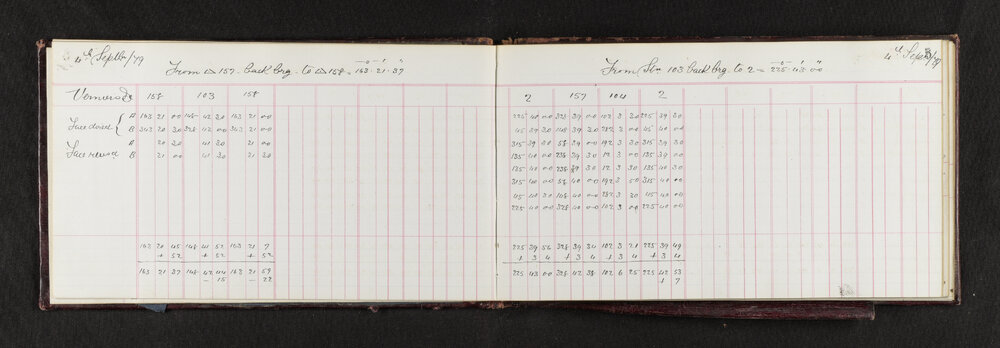 4th Septbr/79
From △ 157 back brg. to △ 158 = 163° 21' 37"
Verniers 158 103 158
Face direct A 163 21 00 148 42 30 163 21 00
B 343 20 30 328 42 00 343 21 00
20 30 41 30 21 00
B 21 00 41 30 21 30
163 20 45 148 41 52 163 21 7
+ 52 + 52 + 52
163 21 37 148 42 44 163 21 59
- 15 - 22
4th Septbr/79
From Stn 103 back brg. to 2 = 225° 43' 00"
2 157 104 2
225 40 00 328 39 00 102 3 30 225 39 30
45 39 30 148 39 30 282 3 00 45 40 00
315 39 00 58 39 00 192 3 30 315 39 30
135 40 00 238 39 30 12 3 00 135 39 00
135 40 00 238 39 30 12 3 30 135 40 30
315 40 00 58 40 00 192 3 50 315 40 00
45 40 30 148 40 00 282 3 30 45 40 00
225 40 00 328 40 00 102 3 00 225 40 00
225 39 52 328 39 34 102 3 21 225 39 49
+ 3 4 + 3 4 + 3 4 + 3 4
225 43 00 328 42 38 102 6 25 225 42 53
+ 7